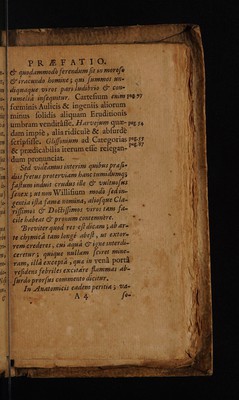 PRÆFATIO.
& quodammodo ferendum se ut moroso
& iracundo homine; qui summos un-
diquaque viros pari ludibrio & con-
tumeliâ insequitur. Cartesium cum pag. 97
foeminis Aulicis & ingeniis aliorum
minus solidis aliquam Eruditionis
umbram venditâsse. Harvejum quæ- pag. 54
dam impiè, alia ridiculè & absurdè
scripsisse. Glissonium ad Categorias pag. 55
& prædicabilia iterum esse relegan- pag. 67
dum pronunciat.
Sed videamus interim quibus præsi-
diis fretus proterviam hanc tumidumq;
fastum induit crudus ille & vulnificus
sævus; ut non Willisium modò sed in-
gentia ista famâ nomina, aliosque Cla-
rissimos & Doctissimos viros tam fa-
cilè habeat & pronum contemnere.
Breviter quod res est dicam; ab ar-
te chymicâ tam longè abest, ut extor-
rem crederes; cui aquâ & igne interdi-
ceretur; quique nullam sciret mine-
ram, illâ exceptâ, quæ in venâ portâ
residens febriles excitare flammas ab-
surdo prorsus commento dicitur.
In Anatomicis eadem peritia; va-
A 4 se-